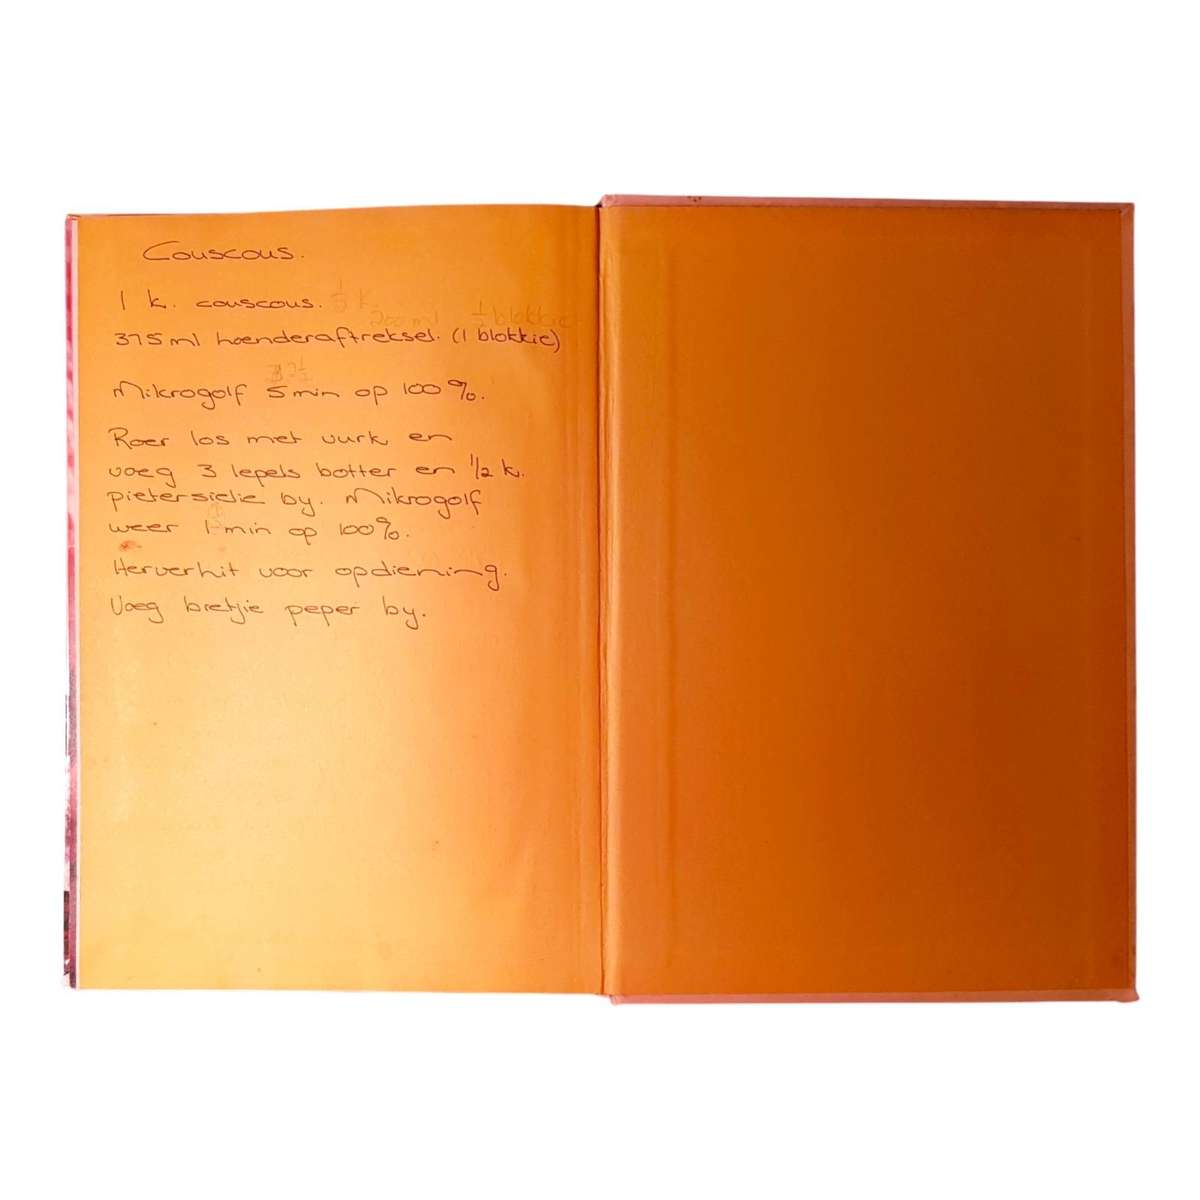 Couscous.
1 k. couscous. ½ k.
200 ml ½ blokkie
375 ml hoenderaftreksel. (1 blokkie)
2½
Mikrogolf 5 min op 100%.
Roer los met vurk en
voeg 3 lepels botter en 1/2 k.
pietersielie by. Mikrogolf
weer 1 min op 100%.
Herverhit voor opdiening.
Voeg bietjie peper by.